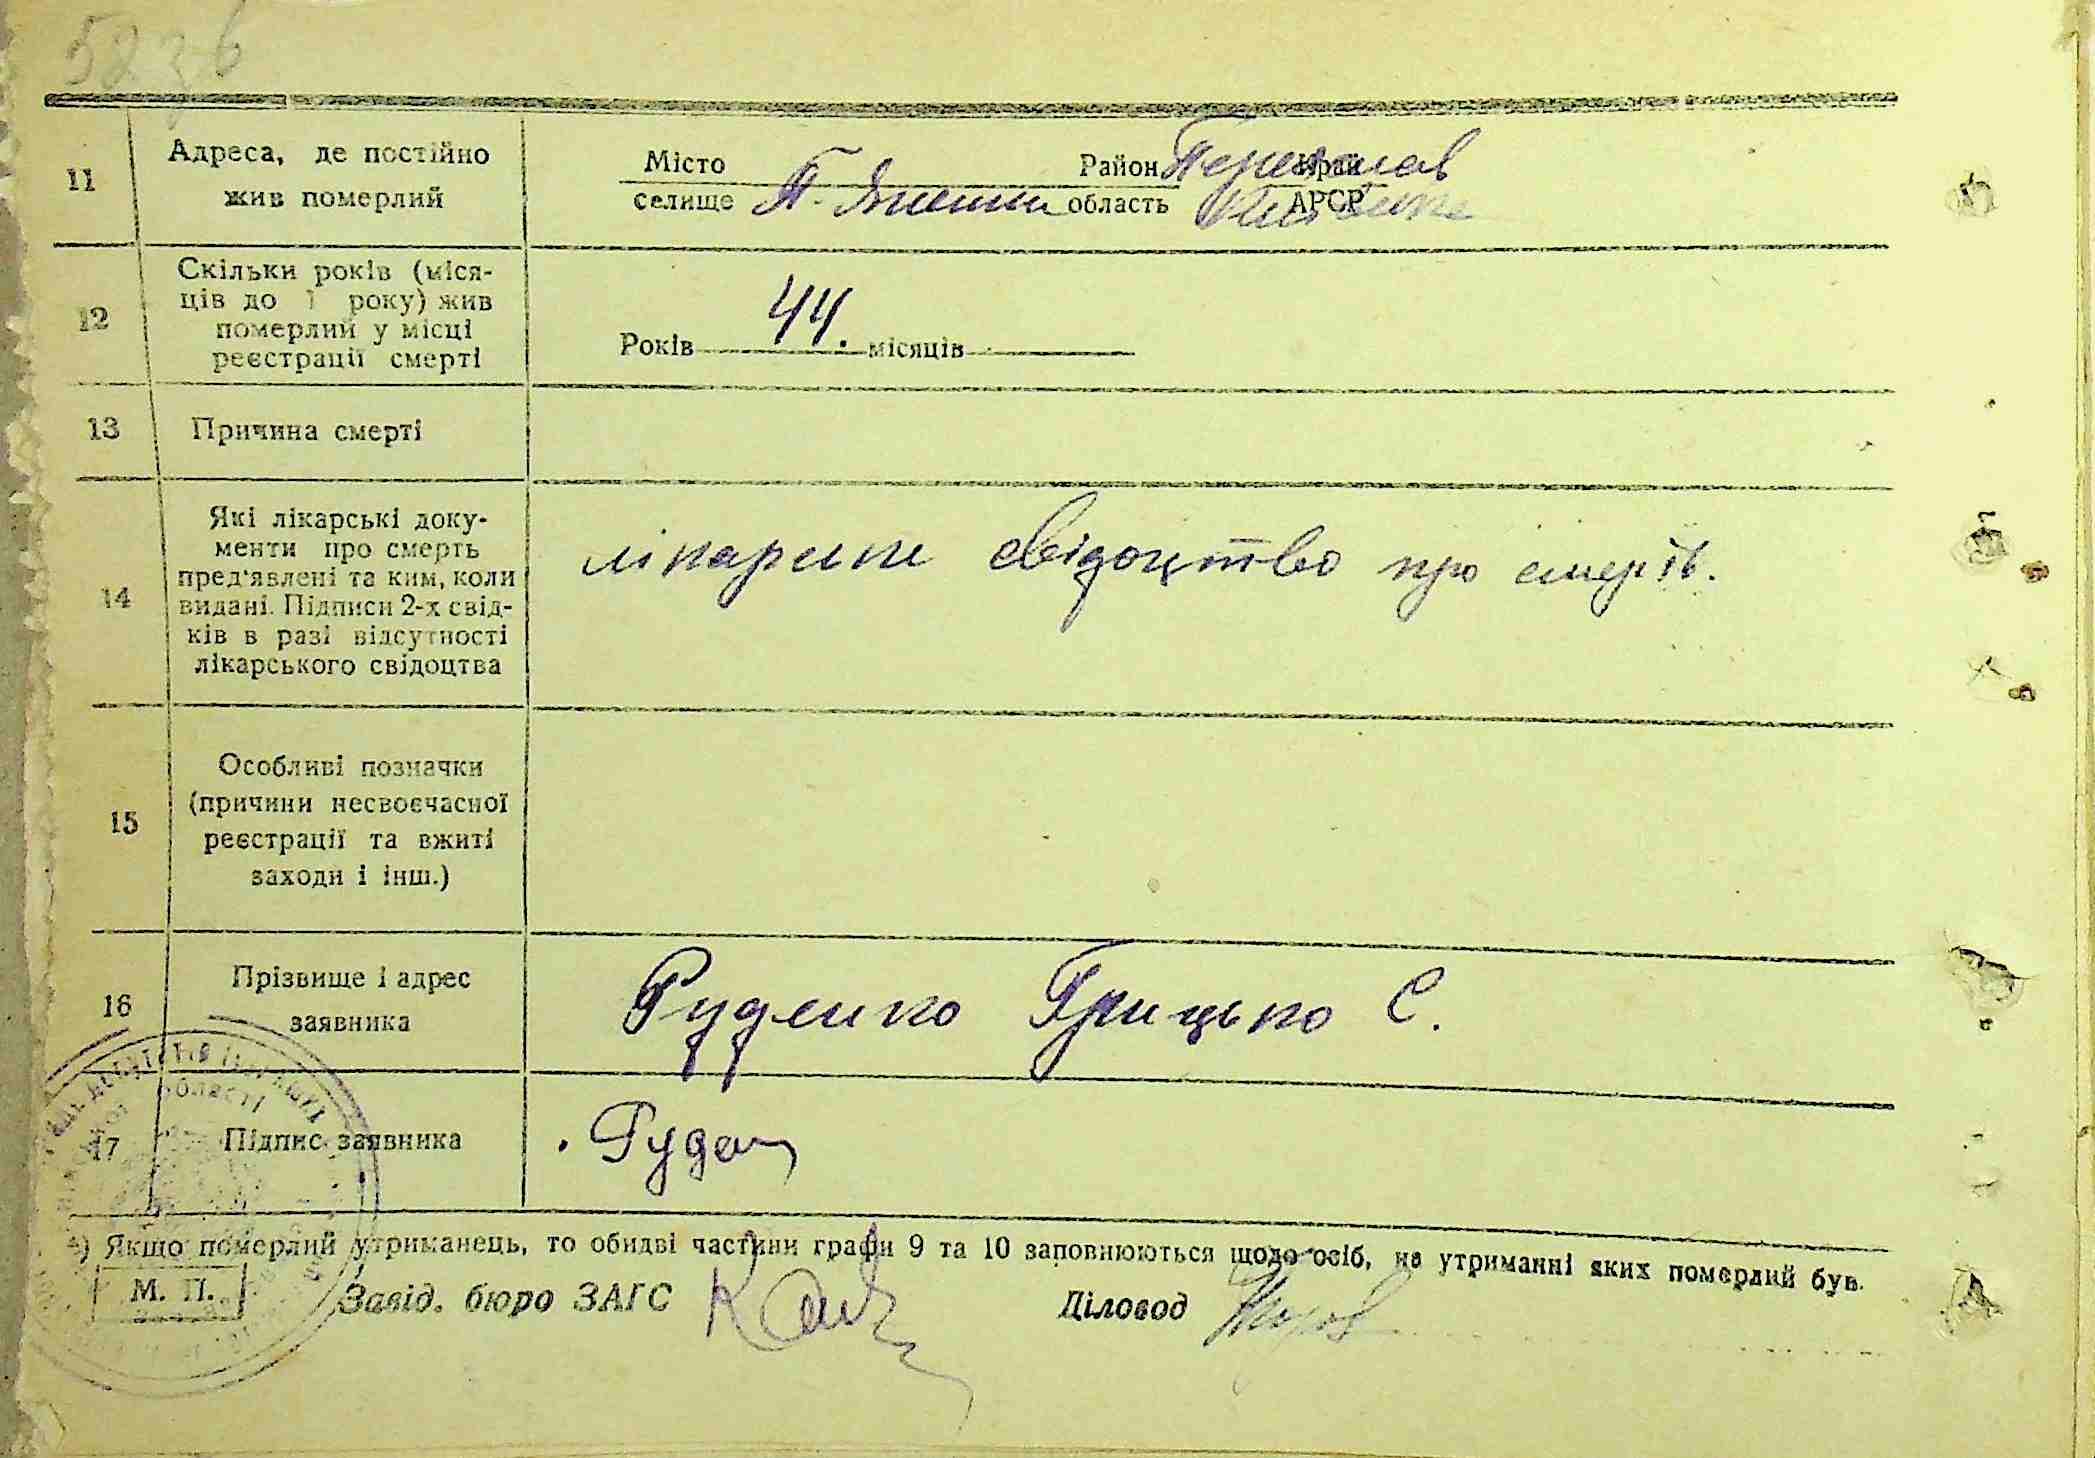 58 зв
11 Адреса, де постійно жив померлий
Місто Район Переяслав Край
селище область Київська АРСР
12 Скільки років (міся-
ців до 1 року) жив
померлий у місці
реєстрації смерті
Років 44. місяців
13 Причина смерті
14 Які лікарські доку-
менти про смерть
пред'явлені та ким, коли
видані. Підписи 2-х свід-
ків в разі відсутності
лікарського свідоцтва
лікарське свідоцтво про смерть.
15 Особливі позначки
(причини несвоєчасної
реєстрації та вжиті
заходи і інш.)
16 Прізвище і адрес
заявника
Руденко Грицько С.
17 Підпис заявника
*) Якщо померлий утриманець, то обидві частини графи 9 та 10 заповнюються щодо осіб, на утриманні яких померлий був.
М. П. Завід. бюро ЗАГС Діловод